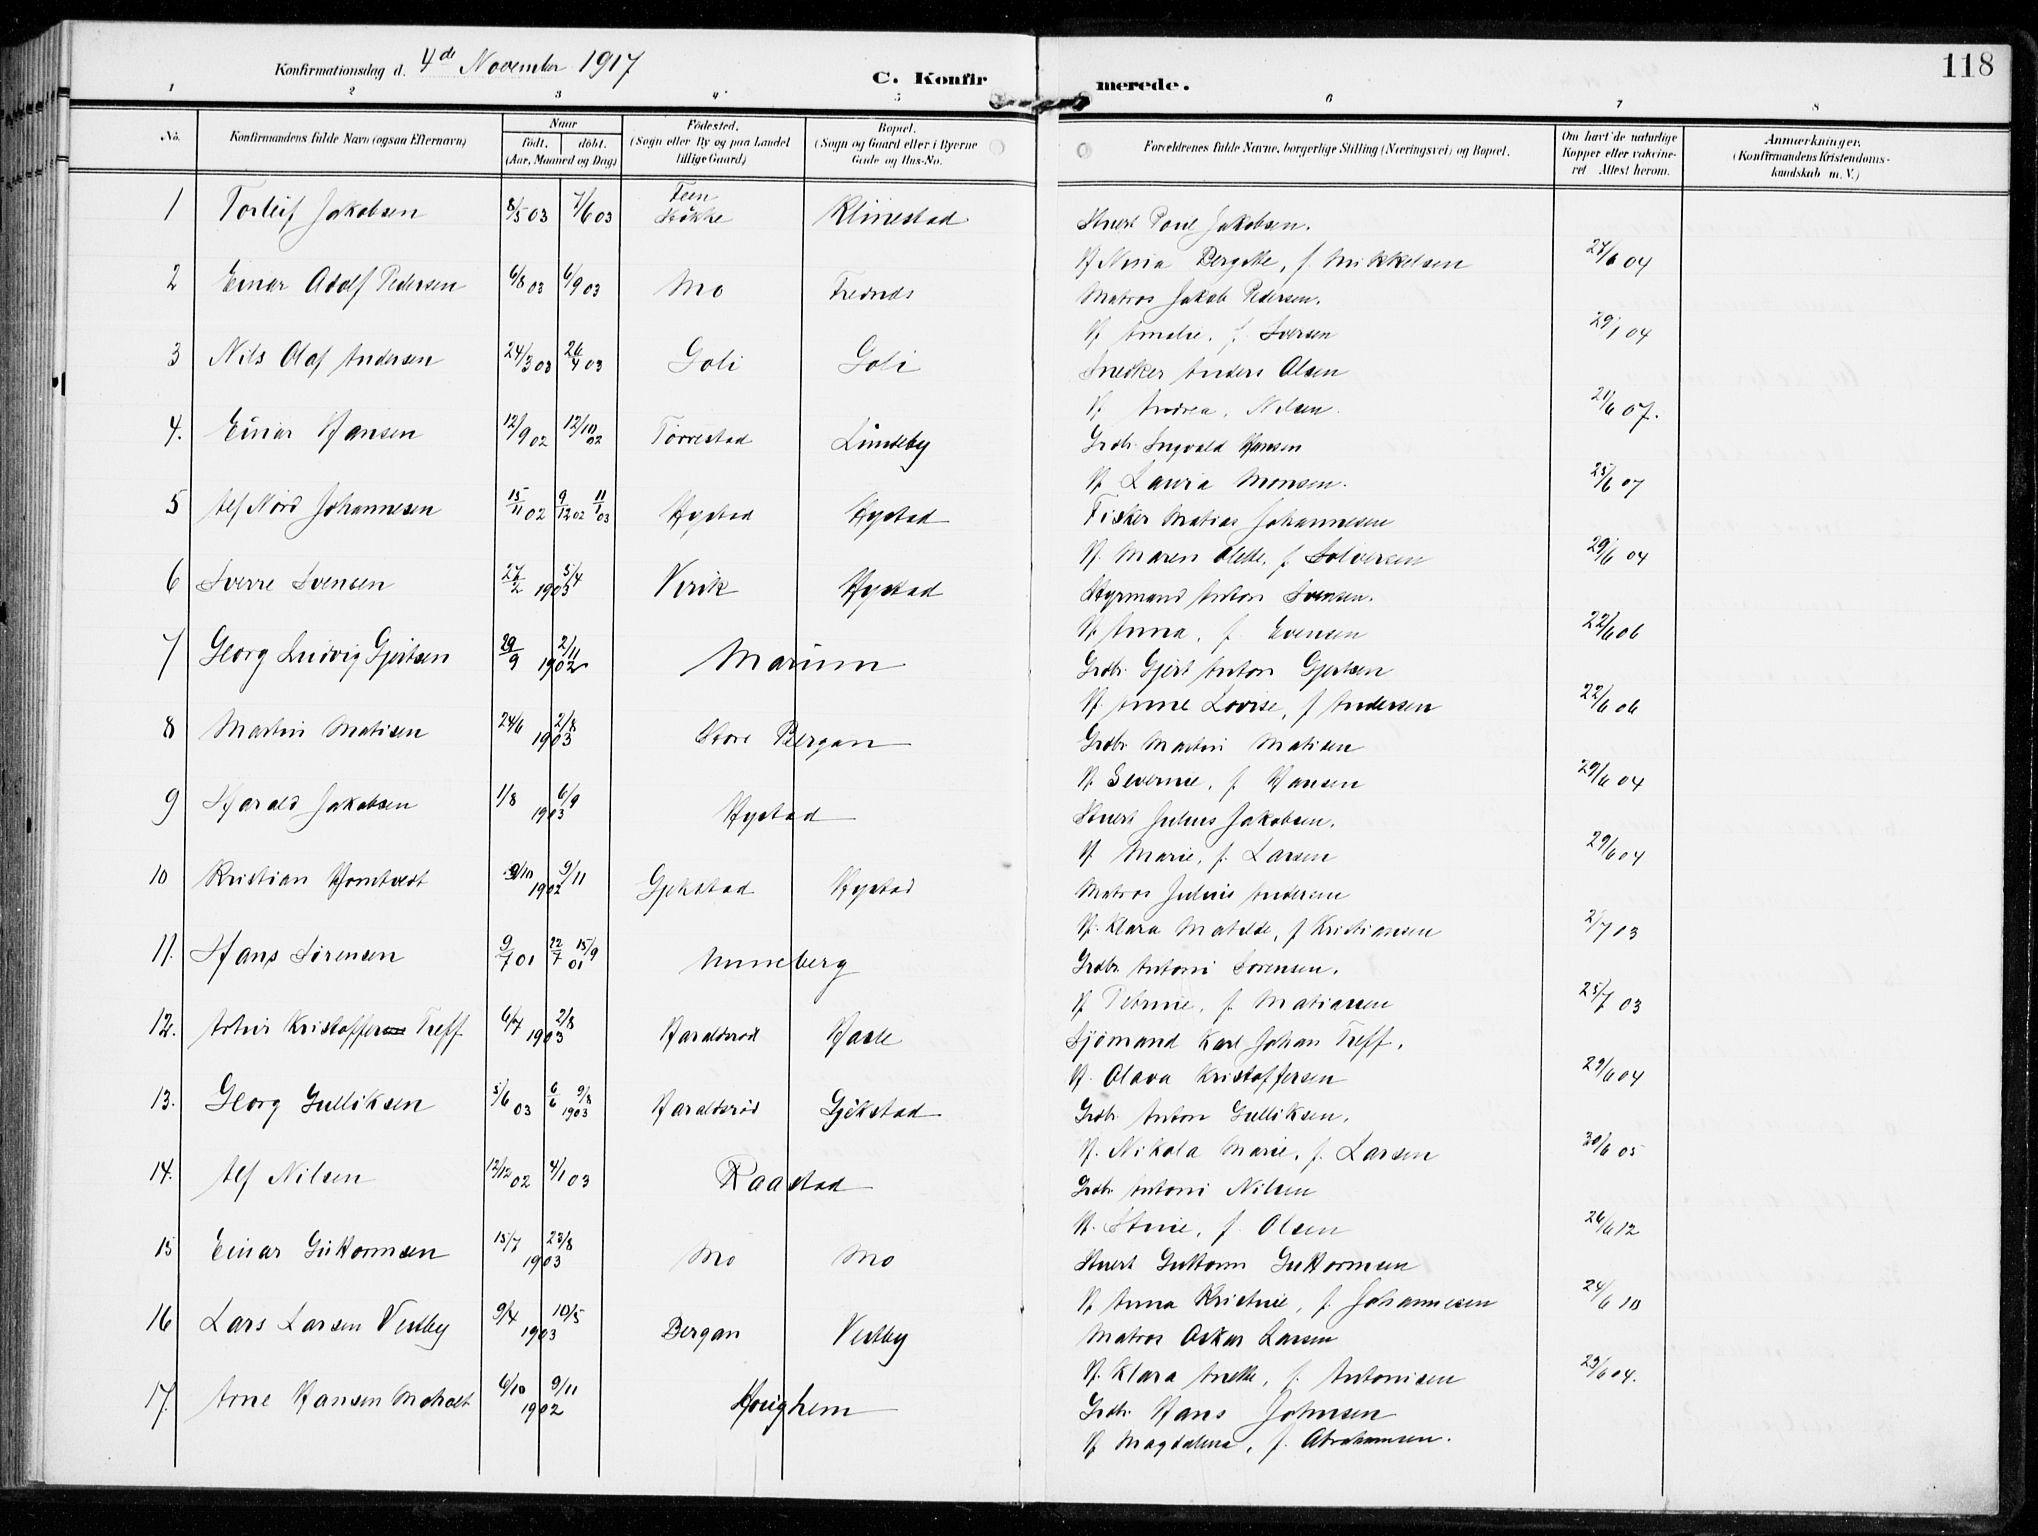 Konfirmationsdag d. 4de November 1917
C. Konfirmerede.
118
1 2 3 4 5 6 7 8
No. Konfirmandens fulde Navn (ogsaa Efternavn) Naar født. døbt. (Aar, Maaned og Dag) Fødested. (Sogn eller By og paa Landet tillige Gaard) Bopæl. (Sogn og Gaard eller i Byerne Gade og Hus-No. Forældrenes fulde Navne, borgerlige Stilling (Næringsvei) og Bopæl. Om havt de naturlige Kopper eller vakcineret Attest herom. Anmærkninger. (Konfirmandens Kristendomskundskab m. V.)
1 Torleif Jakobsen 8/5 03 7/6 03 Feen Stokke Klinestad Jakobsen.
f. Mikkelsen 27/6 04
2 Einar Adolf Pedersen 6/8 03 6/9 03 Mo Matros Jakob Pedersen.
H. Amalie, f. Iversen 29/1 04
3 Nils Olaf Andersen 24/3 03 26/4 03 Goli Goli Snedker Anders Olsen
H. Andrea, Nilsen. 21/6 07.
4. Einar Hansen 12/9 02 12/10 02 Torrestad Lundeby Grdbr. Ingvald Hansen
H. Laura Monsen. 25/6 07
5 Alf Nord Johannesen 15/11 02 9/12 02 11/1 03 Hystad Hystad Fisker Matias Johannesen
H. Maren Olette, f. 29/6 04
6 Sverre Svensen 27/2 5/4 1903 Virik Hystad Styrmand Anton Svensen.
H. Anna, f. Evensen 22/6 06
7 Georg Ludvig Gjertsen 29/9 2/11 1902 Marum Grdbr. Gjert Anton Gjertsen
H. Anne Lovise, f. Andersen 22/6 06
8 Martin Matisen 24/6 2/8 1903 Store Bergan Grdbr. Martin Matisen
H. Severine, f. Hansen 29/6 04
9 Harald Jakobsen 1/8 6/9 1903 Hystad Stuert Julius Jakobsen.
H. Marie, f. Larsen 29/6 04
10 Kristian Homtvedt 9/11 1902 Gjekstad Hystad Matros Julius Andersen
H. Klara Matilde, f. Kristiansen 2/7 03
11. Hans Sørensen 9/7 01 22/7 01 15/9 Unneberg Grdbr. Antoni Sørensen.
H. Petrine, f. Matiassen 25/7 03
12. Artur Kristoffer Treff 6/7 2/8 1903 Haraldsrød Hasle Sjømand Karl Johan Treff.
H. Olava Kristoffersen 29/6 04
13. Georg Gulliksen 5/6 03 6/6 9/8 1903 Haraldsrød Gjekstad Grdbr. Anton Gulliksen.
H. Nikola Marie, f. Larsen 30/6 05
14. Alf Nilsen 12/12 02 4/1 03 Raastad Grdbr. Antoni Nilsen
H. Stine, f. Olsen 26/6 12
15 Einar Guttormsen 15/7 23/8 1903 Mo Mo Stuert Guttorm Guttormsen
H. Anna Kristine, f. Johannesen 24/6 10
16 Lars Larsen Vestby 9/4 10/5 1903 Bergan Vestby Matros Oskar Larsen
H. Klara Anette, f. Antonisen 23/6 04.
17. Arne Hansen Moholt 6/10 9/11 1902 Haughem Grdbr. Hans Johnsen
H. Magdalena, f. Abrahamsen.